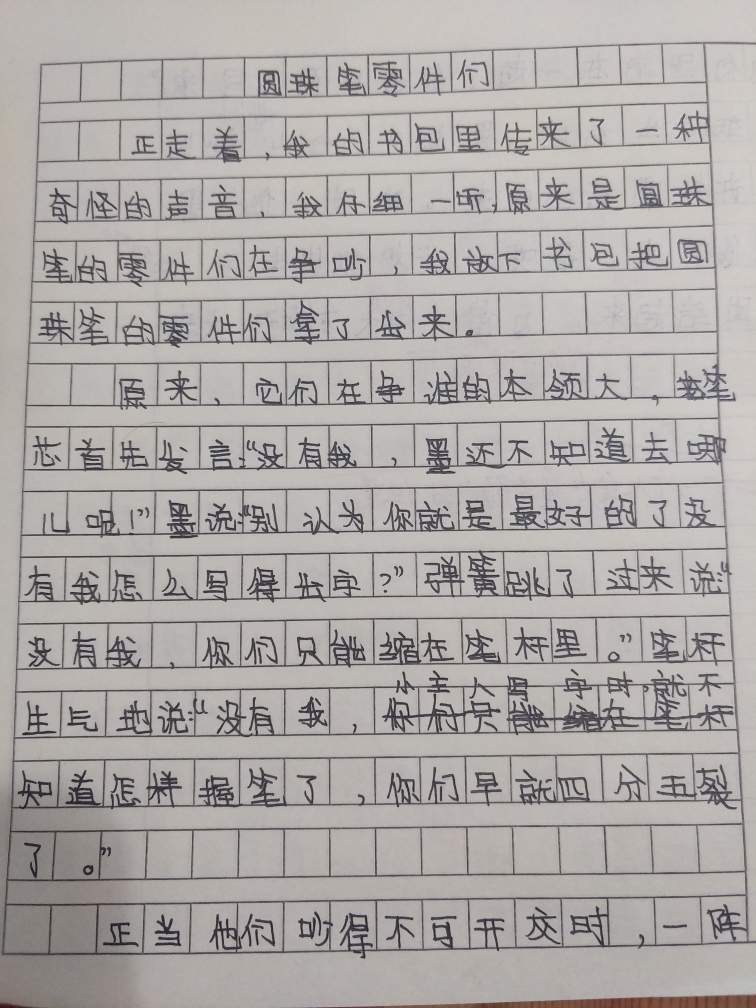 圆珠笔零件们
正走着，我的书包里传来了一种
奇怪的声音，我仔细一听，原来是圆珠
笔的零件们在争吵，我放下书包把圆
珠笔的零件们拿了出来。
原来，它们在争谁的本领大，笔
芯首先发言：“没有我，墨还不知道去哪
儿呢！”墨说：“别认为你就是最好的了没
有我怎么写得出字？”弹簧跳了过来说：“
没有我，你们只能缩在笔杆里。”笔杆
小主人写字时，就不
生气地说：“没有我，你们只能缩在笔杆
知道怎样握笔了，你们早就四分五裂
了。”
正当他们吵得不可开交时，一阵